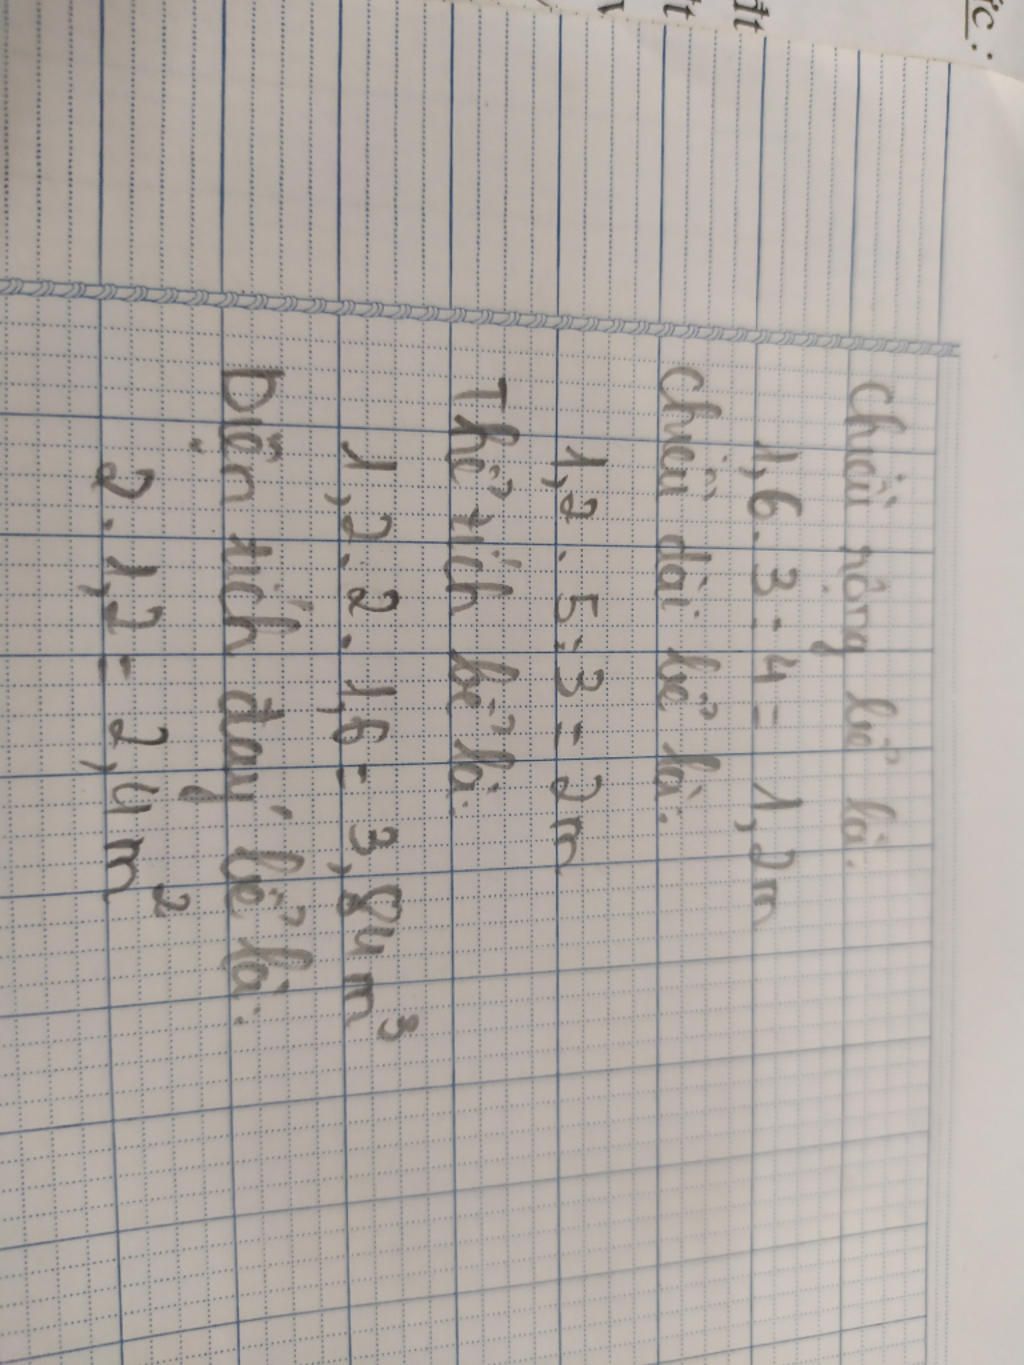 Chiều rộng bể là:
1,6 . 3 : 4 = 1,2 m
Chiều dài bể là:
1,2 . 5 : 3 = 2 m
Thể tích bể là:
1,2 . 2 . 1,6 = 3,84 m³
Diện tích đáy bể là:
2 . 1,2 = 2,4 m²